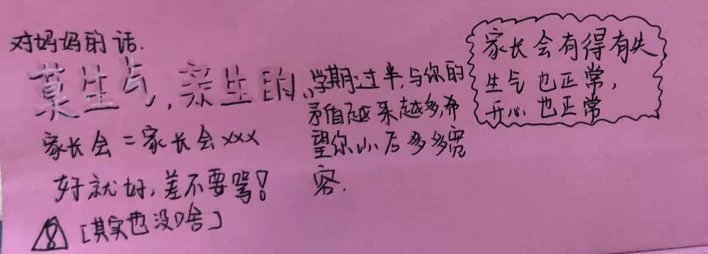 对妈妈的话.
莫生气,亲生的、
家长会=家长会xxx
好就好,差不要骂!
[其实也没啥]
学期过半,与你的
矛盾越来越多,希
望你以后多多宽
容.
家长会有得有失
生气也正常,
开心也正常